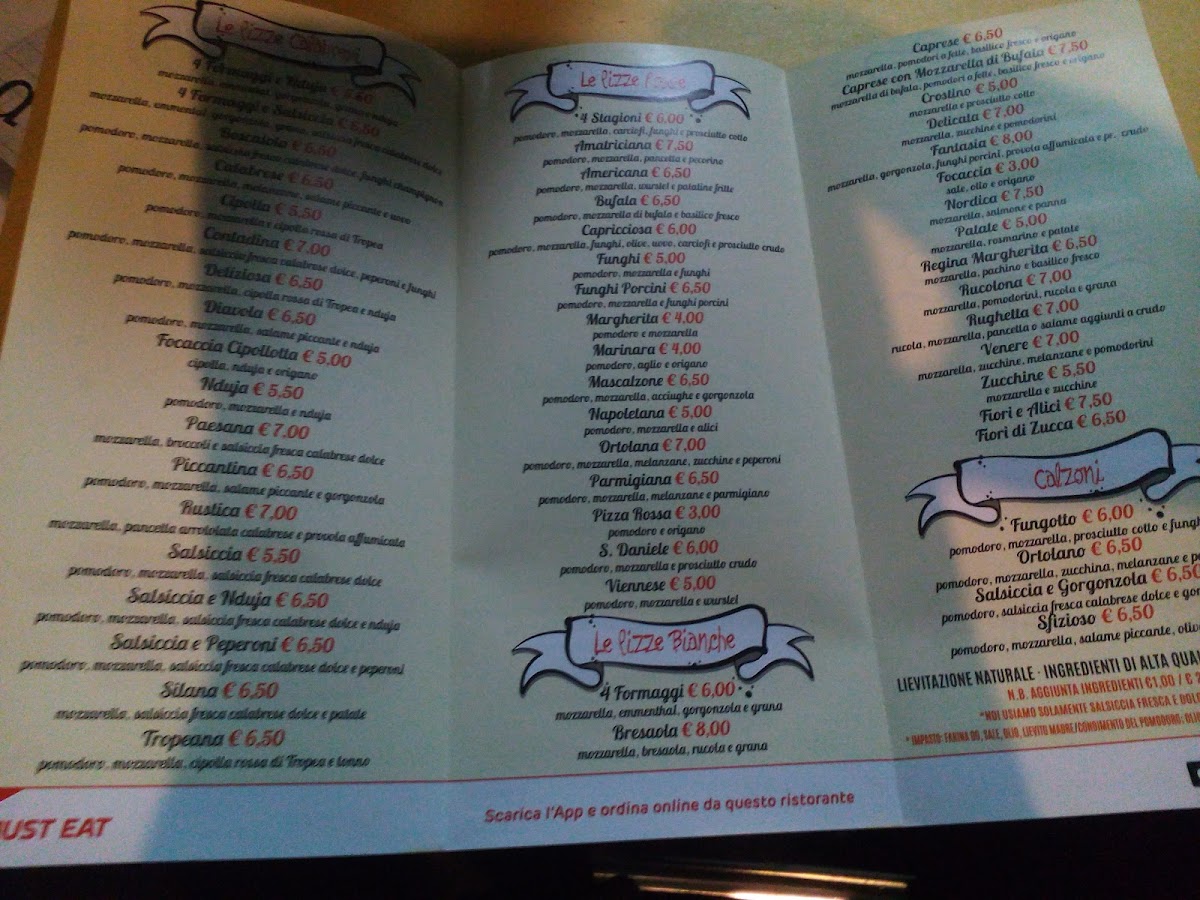 Le Pizze Calabresi
4 Formaggi e Nduja €
mozzarella, emmental, gorgonzola, grana e nduja
4 Formaggi e Salsiccia € 6,50
mozzarella, emmental, gorgonzola, grana, salsiccia fresca calabrese dolce
Boscaiola € 6,50
pomodoro, mozzarella, salsiccia fresca calabrese dolce, funghi champignon
Calabrese € 6,50
pomodoro, mozzarella, melanzane, salame piccante e uovo
Cipolla € 5,50
pomodoro, mozzarella e cipolla rossa di Tropea
Contadina € 7,00
pomodoro, mozzarella, salsiccia fresca calabrese dolce, peperoni e funghi
Deliziosa € 6,50
pomodoro, mozzarella, cipolla rossa di Tropea e nduja
Diavola € 6,50
pomodoro, mozzarella, salame piccante e nduja
Focaccia Cipollotta € 5,00
cipolla, nduja e origano
Nduja € 5,50
pomodoro, mozzarella e nduja
Paesana € 7,00
mozzarella, broccoli e salsiccia fresca calabrese dolce
Piccantina € 6,50
pomodoro, mozzarella, salame piccante e gorgonzola
Rustica € 7,00
mozzarella, pancetta arrotolata calabrese e provola affumicata
Salsiccia € 5,50
pomodoro, mozzarella, salsiccia fresca calabrese dolce
Salsiccia e Nduja € 6,50
pomodoro, mozzarella, salsiccia fresca calabrese dolce e nduja
Salsiccia e Peperoni € 6,50
pomodoro, mozzarella, salsiccia fresca calabrese dolce e peperoni
Silana € 6,50
mozzarella, salsiccia fresca calabrese dolce e patate
Tropeana € 6,50
pomodoro, mozzarella, cipolla rossa di Tropea e tonno
JUST EAT
Le Pizze Rosse
4 Stagioni € 6,00
pomodoro, mozzarella, carciofi, funghi e prosciutto cotto
Amatriciana € 7,50
pomodoro, mozzarella, pancetta e pecorino
Americana € 6,50
pomodoro, mozzarella, wurstel e patatine fritte
Bufala € 6,50
pomodoro, mozzarella di bufala e basilico fresco
Capricciosa € 6,00
pomodoro, mozzarella, funghi, olive, uovo, carciofi e prosciutto crudo
Funghi € 5,00
pomodoro, mozzarella e funghi
Funghi Porcini € 6,50
pomodoro, mozzarella e funghi porcini
Margherita € 4,00
pomodoro e mozzarella
Marinara € 4,00
pomodoro, aglio e origano
Mascalzone € 6,50
pomodoro, mozzarella, acciughe e gorgonzola
Napoletana € 5,00
pomodoro, mozzarella e alici
Ortolana € 7,00
pomodoro, mozzarella, melanzane, zucchine e peperoni
Parmigiana € 6,50
pomodoro, mozzarella, melanzane e parmigiano
Pizza Rossa € 3,00
pomodoro e origano
S. Daniele € 6,00
pomodoro, mozzarella e prosciutto crudo
Viennese € 5,00
pomodoro, mozzarella e wurstel
Le Pizze Bianche
4 Formaggi € 6,00
mozzarella, emmenthal, gorgonzola e grana
Bresaola € 8,00
mozzarella, bresaola, rucola e grana
Scarica l'App e ordina online da questo ristorante
Caprese € 6,50
mozzarella, pomodori a fette, basilico fresco e origano
Caprese con Mozzarella di Bufala € 7,50
mozzarella di bufala, pomodori a fette, basilico fresco e origano
Crostino € 5,00
mozzarella e prosciutto cotto
Delicata € 7,00
mozzarella, zucchine e pomodorini
Fantasia € 8,00
mozzarella, gorgonzola, funghi porcini, provola affumicata e pr. crudo
Focaccia € 3,00
sale, olio e origano
Nordica € 7,50
mozzarella, salmone e panna
Patate € 5,00
mozzarella, rosmarino e patate
Regina Margherita € 6,50
mozzarella, pachino e basilico fresco
Rucolona € 7,00
mozzarella, pomodorini, rucola e grana
Rughetta € 7,00
rucola, mozzarella, pancetta o salame aggiunti a crudo
Venere € 7,00
mozzarella, zucchine, melanzane e pomodorini
Zucchine € 5,50
mozzarella e zucchine
Fiori e Alici € 7,50
Fiori di Zucca € 6,50
Calzoni
Fungotto € 6,00
pomodoro, mozzarella, prosciutto cotto e fungh
Ortolano € 6,50
pomodoro, mozzarella, zucchina, melanzane e pe
Salsiccia e Gorgonzola € 6,50
pomodoro, salsiccia fresca calabrese dolce e gor
Sfizioso € 6,50
pomodoro, mozzarella, salame piccante, olive
LIEVITAZIONE NATURALE · INGREDIENTI DI ALTA QUAL
N.B. AGGIUNTA INGREDIENTI €1,00 / € 2
*NOI USIAMO SOLAMENTE SALSICCIA FRESCA E DOLC
* IMPASTO: FARINA 00, SALE, OLIO, LIEVITO MADRE/CONDIMENTO DEL POMODORO: OLI